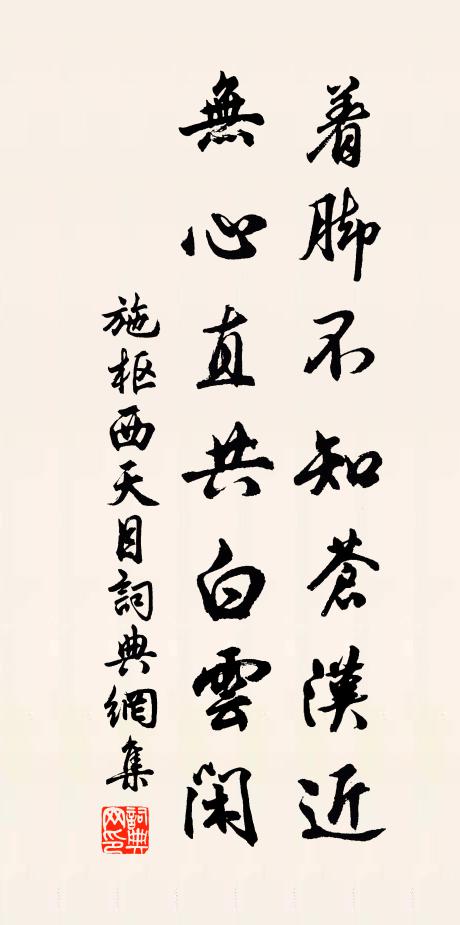 着脚不知蒼漢近
無心直共白雲閑
施枢西天目詞典網集
詞典网印